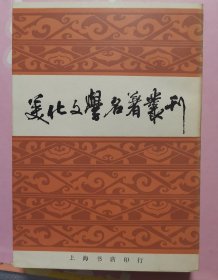 美化文學名著叢刊
上海书店印行